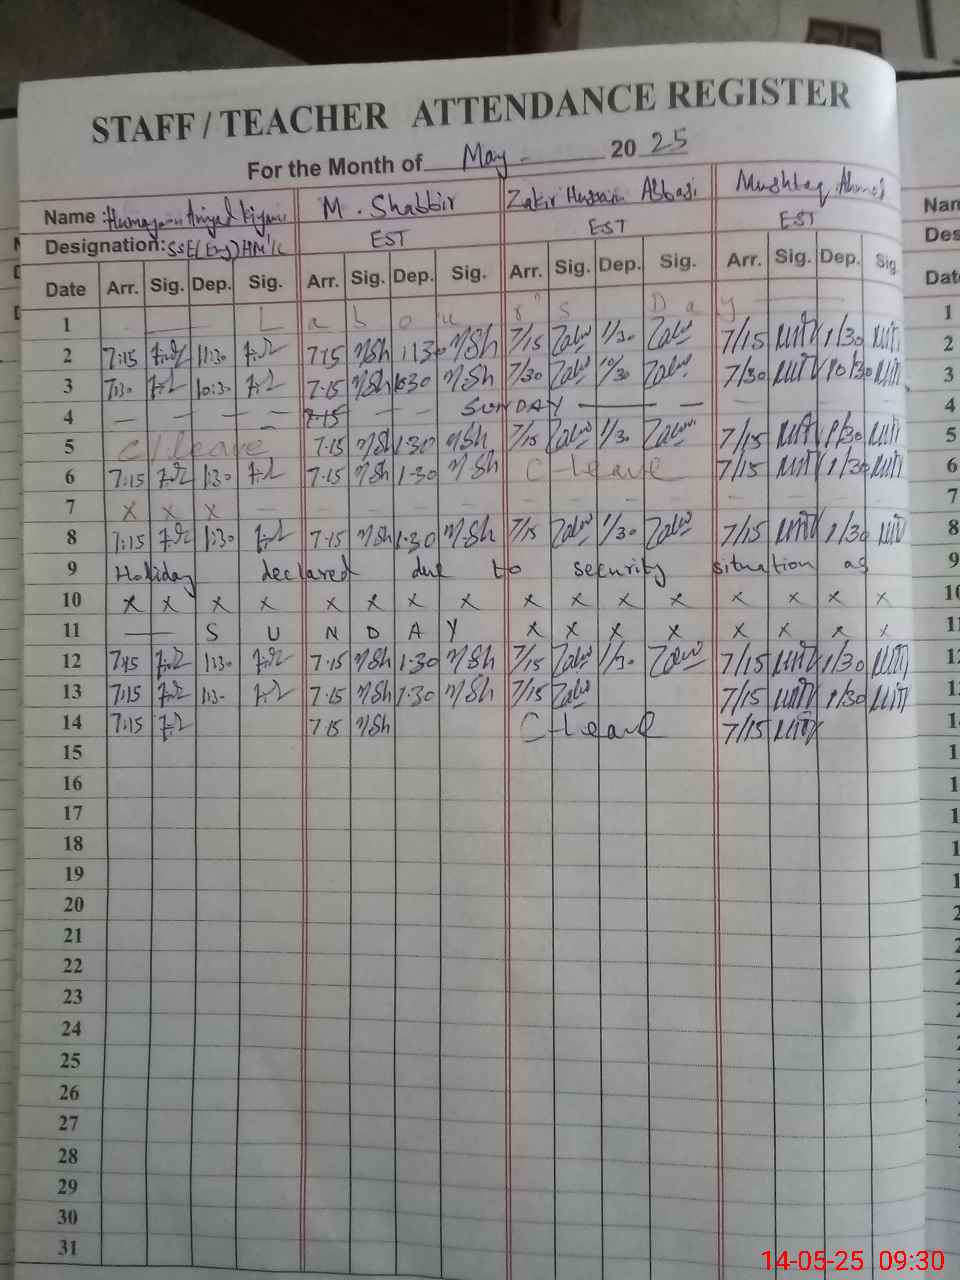 STAFF / TEACHER ATTENDANCE REGISTER
For the Month of May 20 25
Name : M. Shabbir Zakir Hussain Abbasi Mushtaq Ahmed
Designation: SSE(Eng) HM I/C EST EST EST
Date Arr. Sig. Dep. Sig. Arr. Sig. Dep. Sig. Arr. Sig. Dep. Sig. Arr. Sig. Dep. Sig.
1 L a b o u r's D a y
2 7:15 1:30 7:15 M.Sh 1:30 M.Sh 7/15 1/30 7/15 1/30
3 7:30 10:30 7.15 M.Sh 10:30 M.Sh 7/30 10/30 7/30 10/30
4 7.15 SUNDAY
5 C/leave 7.15 M.Sh 1.30 M.Sh 7/15 1/30 7/15 1/30
6 7:15 1:30 7.15 M.Sh 1.30 M.Sh C-leave 7/15 1/30
7 x x x
8 7:15 1:30 7.15 M.Sh 1.30 M.Sh 7/15 1/30 7/15 1/30
9 Holiday declared due to security situation as
10 x x x x x x x x x x x x x x x x
11 S U N D A Y x x x x x x x x
12 7:15 1:30 7.15 M.Sh 1.30 M.Sh 7/15 1/30 7/15 1/30
13 7:15 1:30 7.15 M.Sh 1.30 M.Sh 7/15 7/15 1/30
14 7:15 7.15 M.Sh C-leave 7/15
15
16
17
18
19
20
21
22
23
24
25
26
27
28
29
30
31
14-05-25 09:30